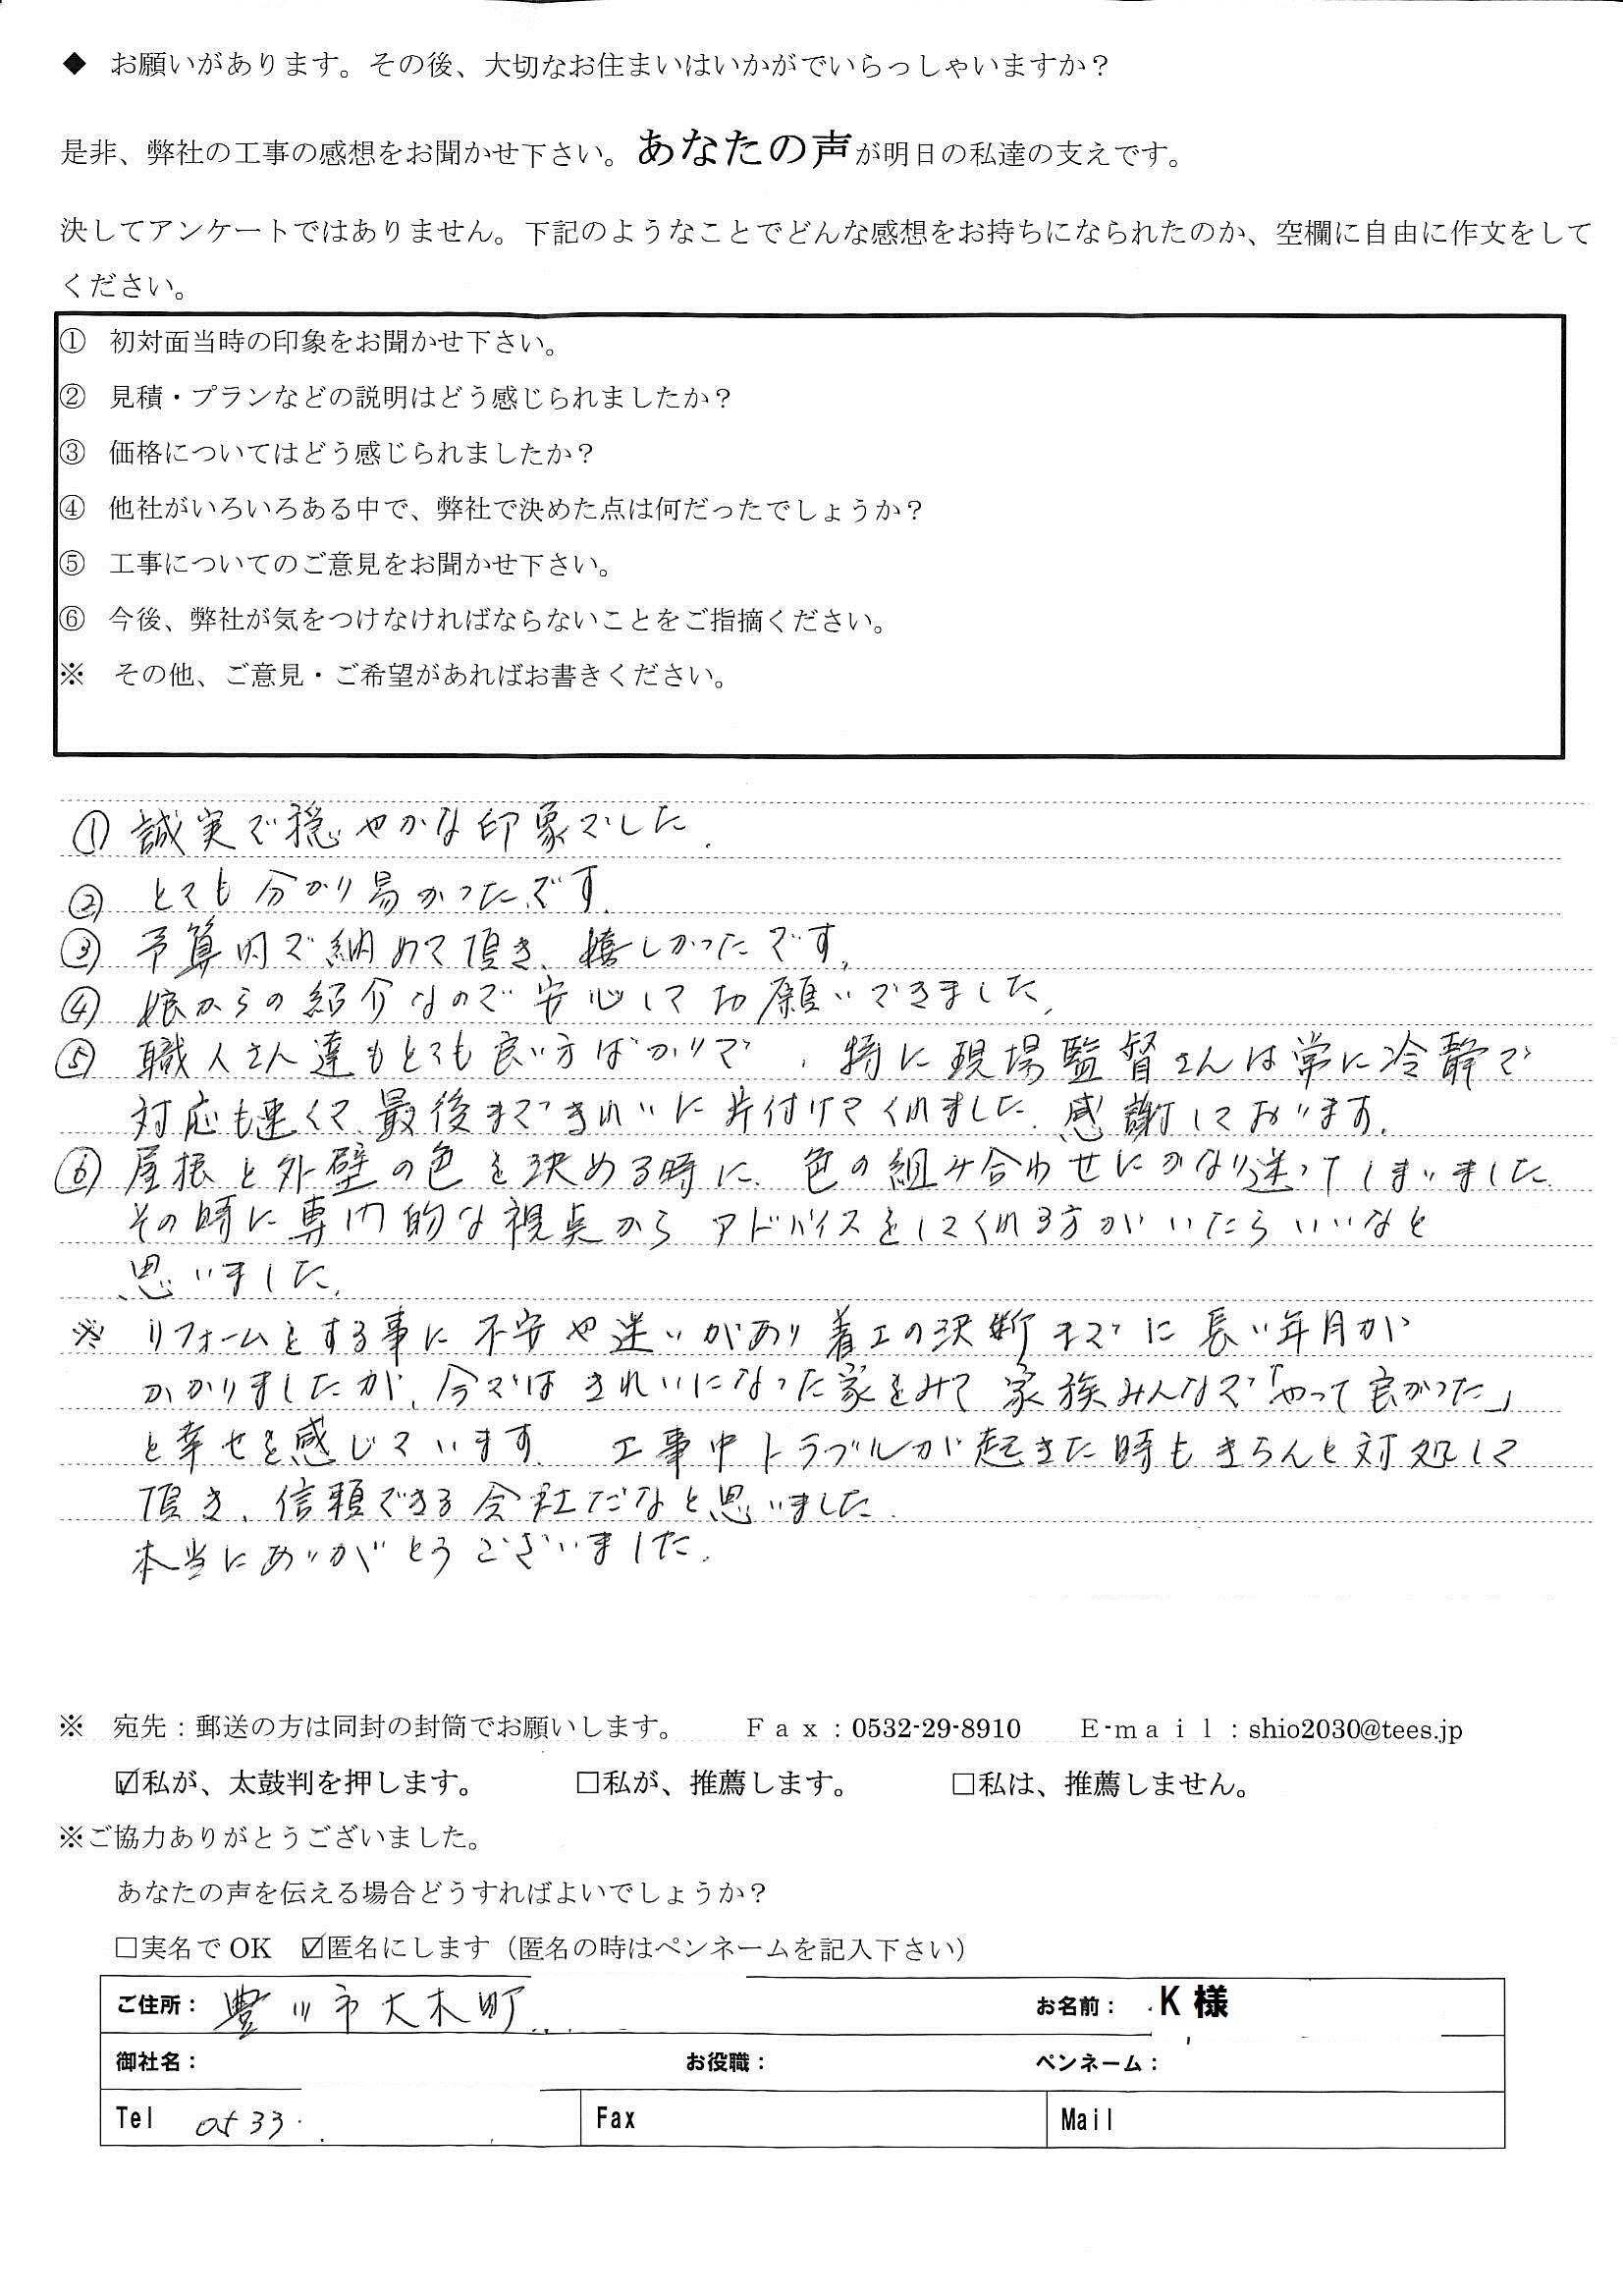 ◆ お願いがあります。その後、大切なお住まいはいかがでいらっしゃいますか？
是非、弊社の工事の感想をお聞かせ下さい。あなたの声が明日の私達の支えです。
決してアンケートではありません。下記のようなことでどんな感想をお持ちになられたのか、空欄に自由に作文をして
ください。
① 初対面当時の印象をお聞かせ下さい。
② 見積・プランなどの説明はどう感じられましたか？
③ 価格についてはどう感じられましたか？
④ 他社がいろいろある中で、弊社で決めた点は何だったでしょうか？
⑤ 工事についてのご意見をお聞かせ下さい。
⑥ 今後、弊社が気をつけなければならないことをご指摘ください。
※ その他、ご意見・ご希望があればお書きください。
① 誠実で穏やかな印象でした。
② とても分かり易かったです。
③ 予算内で納めて頂き、嬉しかったです。
④ 娘からの紹介なので安心してお願いできました。
⑤ 職人さん達もとても良い方ばかりで、特に現場監督さんは常に冷静で
対応も速くて、最後まできれいに片付けてくれました。感謝しております。
⑥ 屋根と外壁の色を決める時に、色の組み合わせにかなり迷ってしまいました。
その時に専門的な視点からアドバイスをしてくれる方がいたらいいなと
思いました。
※ リフォームをする事に不安や迷いがあり着工の決断までに長い年月が
かかりましたが、今ではきれいになった家をみて家族みんなで「やって良かった」
と幸せを感じています。 工事中トラブルが起きた時もきちんと対処して
頂き、信頼できる会社だなと思いました。
本当にありがとうございました。
※ 宛先：郵送の方は同封の封筒でお願いします。 Ｆａｘ：0532-29-8910 Ｅ-ｍａｉｌ：shio2030@tees.jp
☑私が、太鼓判を押します。 □私が、推薦します。 □私は、推薦しません。
※ご協力ありがとうございました。
あなたの声を伝える場合どうすればよいでしょうか？
□実名で OK ☑匿名にします（匿名の時はペンネームを記入下さい）
ご住所： 豊川市大木町 お名前： K 様
御社名： お役職： ペンネーム：
Tel 0533 Fax Mail